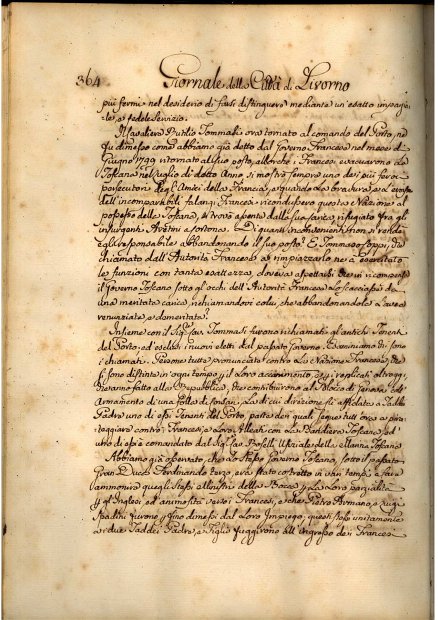 364 Giornale della Città di Livorno
più fermi nel desiderio di farsi distinguere mediante un'esatto impiego,
e fedele servizio.
Il Cavaliere Dutilio Tommasi ora tornato al comando del Porto, ne
fu dimesso come abbiamo già detto dal Governo Francese nel mese di
Giugno 1799 ritornato al suo posto, allorchè i Francesi evacuarono la
Toscana nel Luglio di detto Anno si mostrò sempre uno dei più
persecutori degl'Amici della Francia, e quando la bravura, e
dell'incomparabili falangi Francesi ricondussero questa Nazione al
possesso della Toscana, si trovò assente dalla sua carica, rifugiato fra gl'
Insurgenti Aretini a Cortona. Di quanti inconvenienti non si rende
egli responsabile abbandonando il suo posto? E Tommaso Coppi,
chiamato dall'Autorità Francese a rimpiazzarlo ne à esercitato
le funzioni con tanta esattezza, doveva aspettarsi che in ricompensa
il Governo Toscano sotto gl'occhi dell'Autorità Francese lo scacciasse da
una meritata carica, richiamandovi colui, che abbandonandole l'aveva
renunziate, e demeritate?
Insieme con il Sig. Cav. Tommasi furono richiamati gl'antichi Tenenti
del Porto, ed esclusi i nuovi eletti dal passato Governo. Esaminiamo di sono
i chiamati. Persone tutte pronunciate contro la Nazione Francese, che
si sono distinte in ogni tempo per il loro accanimento, e per i replicati oltraggi
fatto alla Repubblica, che contribuirono al Blocco di Genova, ed
Armamento di una di cui direzione fu affidata a Taddei
Padre uno di essi Tenenti del Porto, parte dei quali seguì tutt'ora a
teggiare contro i Francesi, e loro Alleati con la Bandiera Toscana, ed
uno di essi comandato dal Sig. Cav. Boselli Uffiziale della Marina Toscana
Abbiamo già osservato, che lo stesso Governo Toscano, sotto il passato
Gran Duca Ferdinando terzo, era stato costretto in varj tempi a fare
ammonire quegli stessi Ministri della Bocca per la loro parzialità
per gl'Inglesi, ed animosità verso i Francesi, e che Pietro Armano, e Luigi
Spadini furono per fino dimessi dal loro Impiego, questi stessi unitamente
ai due Taddei Padre, e Figlio fuggirono all'ingresso dei Francesi